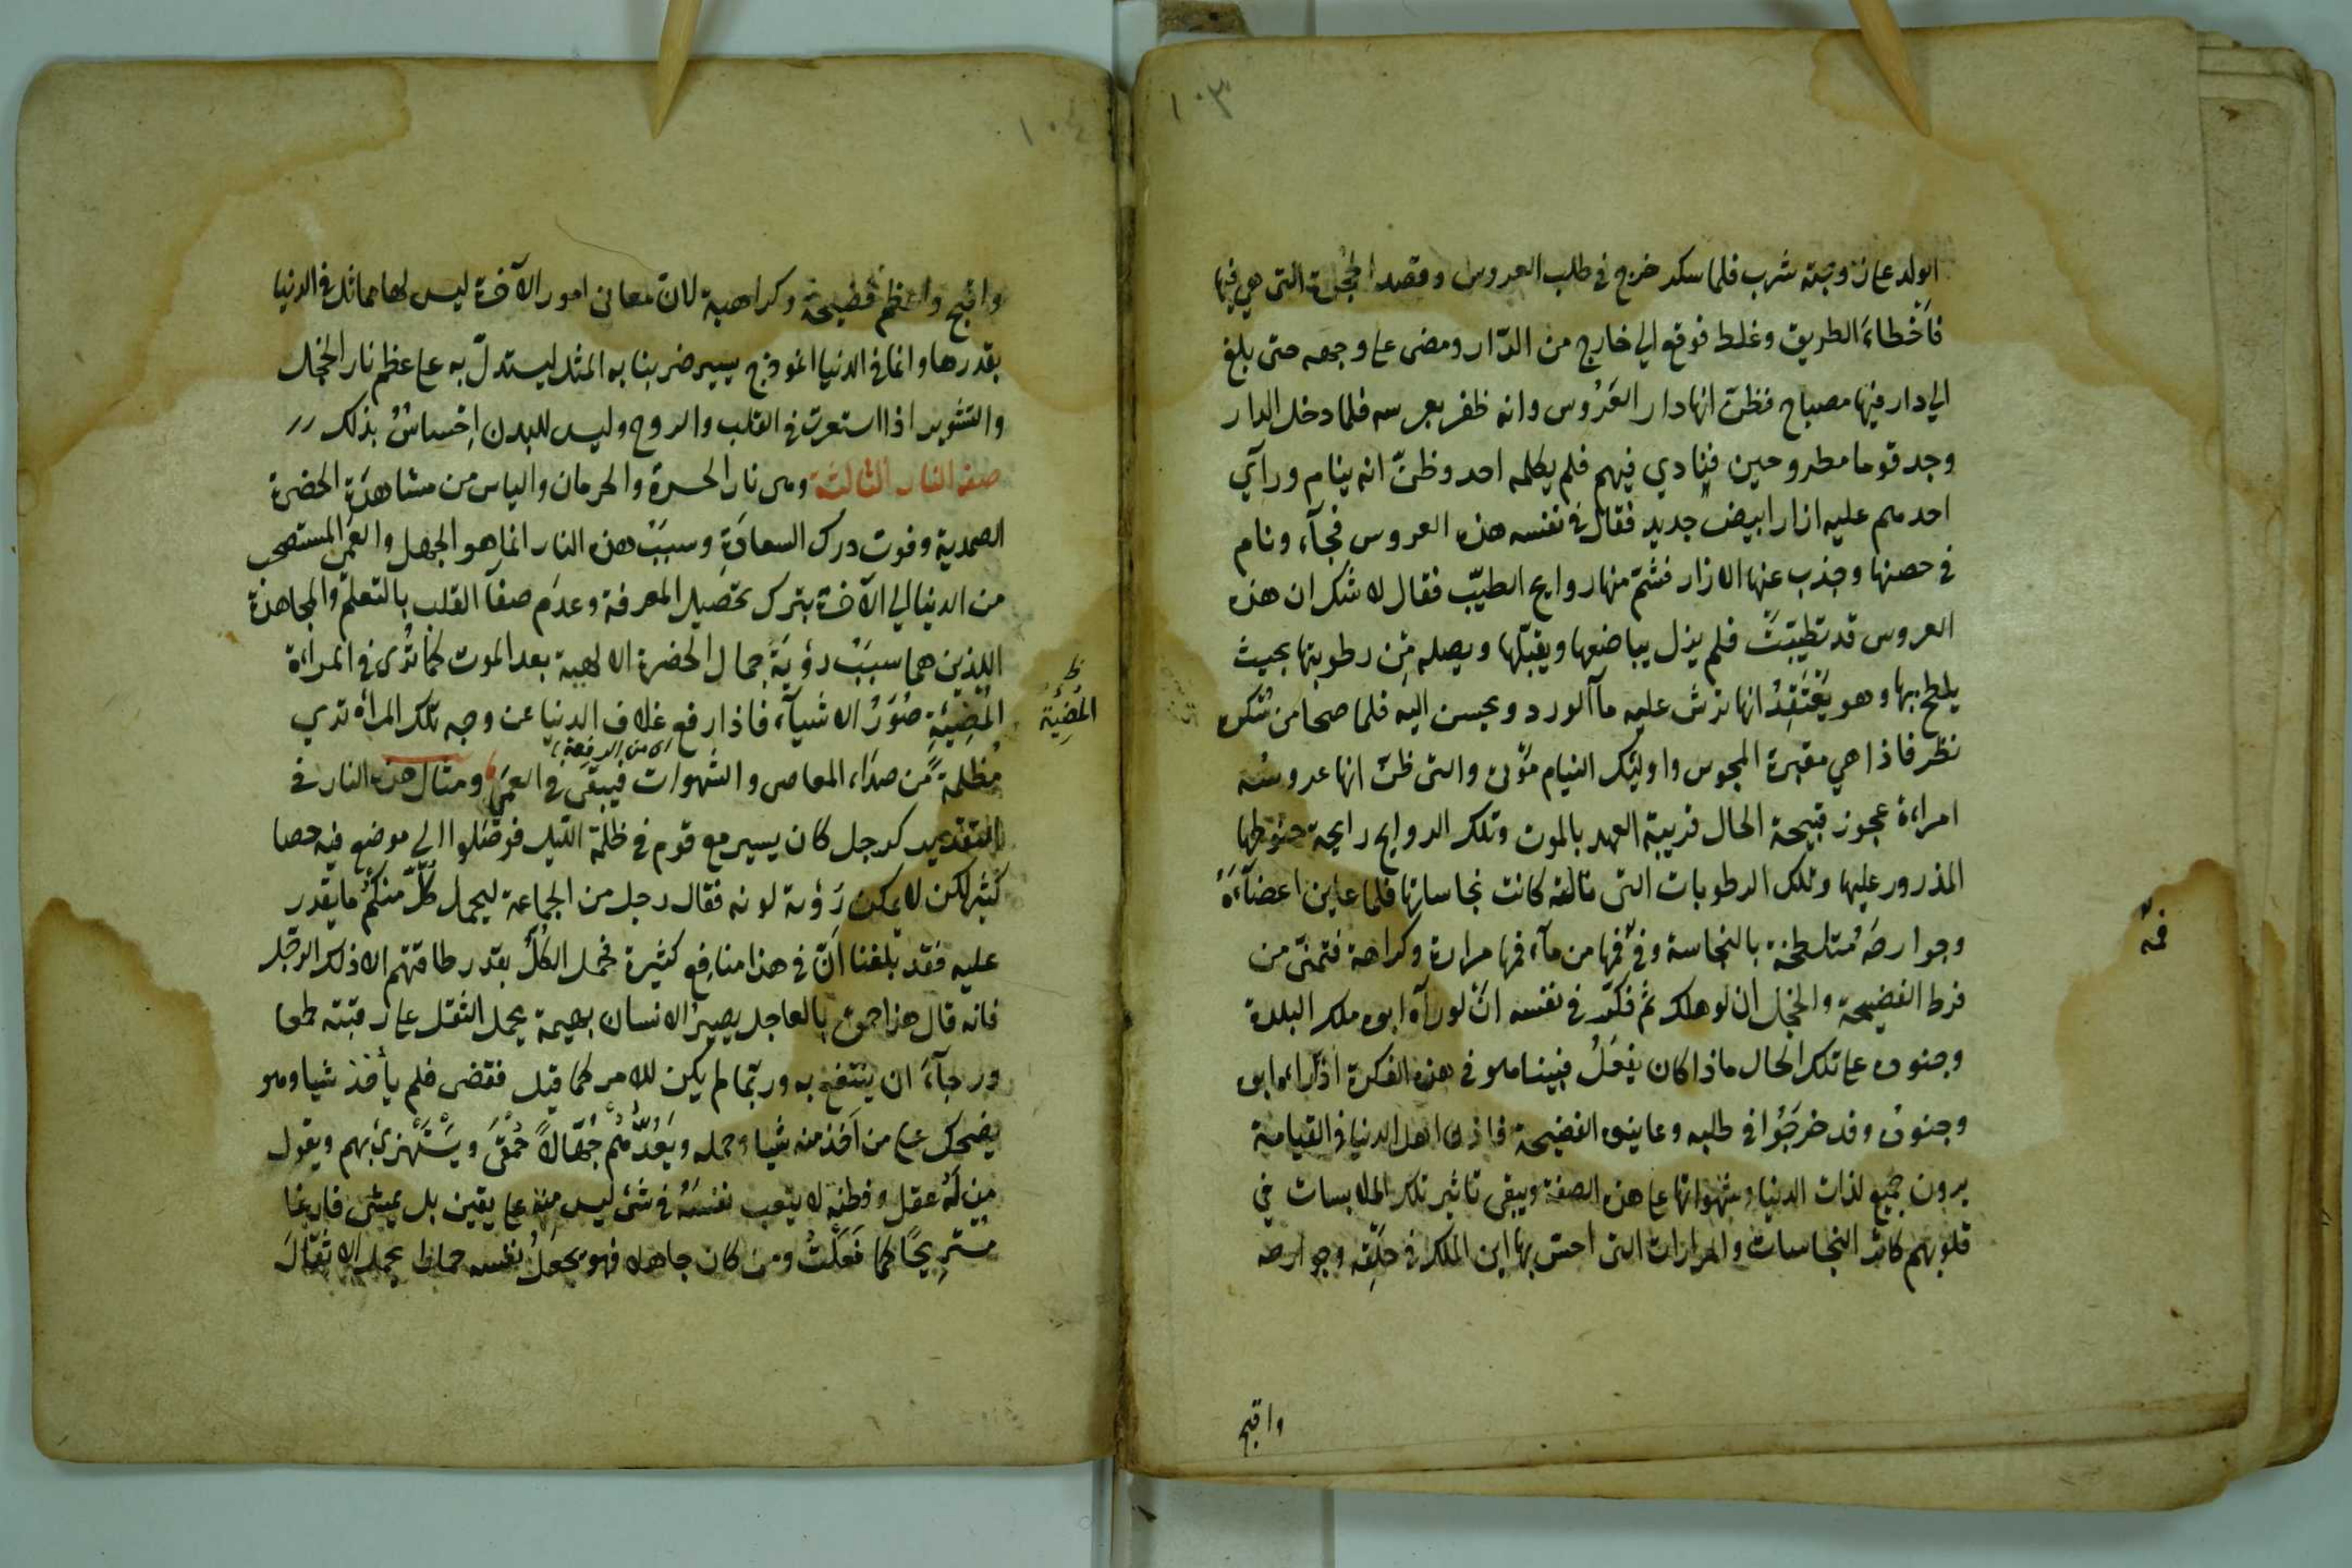 ١٠٣
الولد على زوجته شرب فلما سكر خرج في طلب العروس وقصد الحجرة التي هي فيها
فأخطاء الطريق وغلط فوقع الي خارج من الدّار ومضى على وجهه حتى بلغ
الي دار فيها مصباح فظن انها دار العَرُوس وانه ظفر بعرسه فلما دخل الدار
وجد قوما مطروحين فينادي فيهم فلم يكلمه احد وظنّ انه ينام ورآي
احد منهم عليه ازار ابيض جديد فقال في نفسه هذه العروس فجآء ونام
في حصنها وجذب عنها الازار فشمّ منها روايح الطيّب فقال لا شك ان هذه
العروس قد تطيبَتْ فلم يزل يباضعها ويقبّلها ويصله مِن رطوبتها بحيث
يلطخ بها وهو يَعْتَقِدُ انها ترش عليه مآ الورد ويحسن اليه فلما صحا من سُكره
نظر فاذا هي مقبرة المجوس واوليك النيام مَوْتى والتي ظنّ انها عروسُه
امراءة عجوز قبيحة الحال قريبة العهد بالموت وتلك الروايح رايحة حنوطها
المذرور عليها وتلك الرطوبات التي نالته كانت نجاساتها فلما عاين اعضآءَهُ
وجوارحَهُ متلطخة بالنجاسة وفي فمها من مآء فمها مرارة وكراهة فتمنّى من
فمّه
فرط الفضيحة والخجل ان لو هلك ثم فكّر في نفسه انّ لو رآه ابوه ملك البلدة
وجنوده على تلك الحال ماذا كان يفعَلُ فبينما هو في هذه الفكرة اذ راء ابوه
وجنودُه وقد خرجُوا في طلبه وعاينوا الفضيحة فاذا اهل الدنيا في القيامة
يرون جميع لذات الدنيا وشهواتها على هذه الصفة ويبقى تاثير تلك الملابسات في
قلوبهم كاثر النجاسات والمرارات التي احسّ بها ابن الملك في حلقه وجوارحه
واقبح
١٠٤
واقبح واعظم فضيحة وكراهية لان معاني امور الآخرة ليس لها مماثل في الدنيا
بقدرها وانما في الدنيا انموذج يسير ضربنا به المثل ليستدلّ به على عظم نار الخجل
والتشوير اذا استعرت في القلب والروح وليس للبدن اِحْسَاسٌ بذلك
صفة النار الثالثة وهي نار الحسرة والحرمان والياس من مشاهدة الحضرة
الصمدية وفوت درك السعادة وسببُ هذه النار انما هو الجهل والعمى المستصحب
من الدنيا الي الآخرة بترك تحصيل المعرفة وعدم صفآ القلب بالتعلّم والمجاهدة
اللذين هما سبَبُ رؤيَة جمال الحضرة الالهية بعد الموت كما تُرى في المراءة
المُضِيّئةِ صُوَرُ الاشيآء فاذا رفع غلاف الدنيا عن وجه تلك المرأة تري
ظ المُضِيَّة
مُظلمةً من صداء المعاصي والشهوات فيبقى في العمَى ومثال هذه النار في
اى من الرفعة
التقدير كرجل كان يسير مع قوم في ظلمة اللّيل فوصَلوا الي موضع فيه حصا
كثير لكن لا يمكن رَؤية لونه فقال رجل من الجماعة ليحمل كُلُّ منكُمْ ما يقدر
عليه فقد بلغنا اَنّ في هذا منافع كثيرة فحمل الكُلُّ بقدر طاقتهم الا ذلك الرّجل
فانه قال هذا حمق بالعاجل يصيرُ الانسان بهيمة يحمل الثقل على رقبته طمعا
ورجآءَ ان ينتفع به وربّما لم يكن للامر كما قيل فقضى فلم يأخذ شيا وهو
يضحك على من اَخذ منه شيا وحمله ويَعُدُّهُم جُهّالاً حُمْقَى ويَسْتَهْزئ بهم ويقول
مِن لَهُ عقل وفطنه لا يتعب نفسَهُ في شئ ليس منه على يقين بل يمشى فارغا
مُستريحًا كما فَعَلْتُ ومن كان جاهلا فهو يجعَلُ نفسه حمارا يحمل الاثقالَ